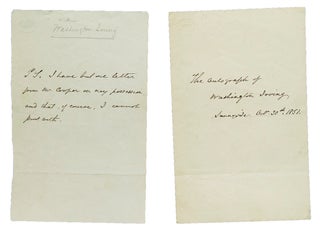 Washington Irving
P.S. I have but one letter
from Mr Cooper in my possession
and that, of course, I cannot
part with.
The autograph of
Washington Irving
Sunnyside Oct. 30th. 1851.